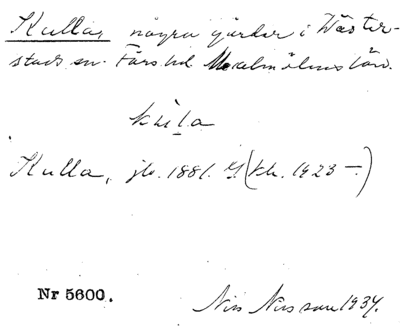 Kulla, några gårdar i Wäster-
stads sn. Färs hd. Malmöhus län.
kula
Kulla, jb. 1881. (kh. 1923 —)
Nr 5600.
Nils Nilsson 1934.